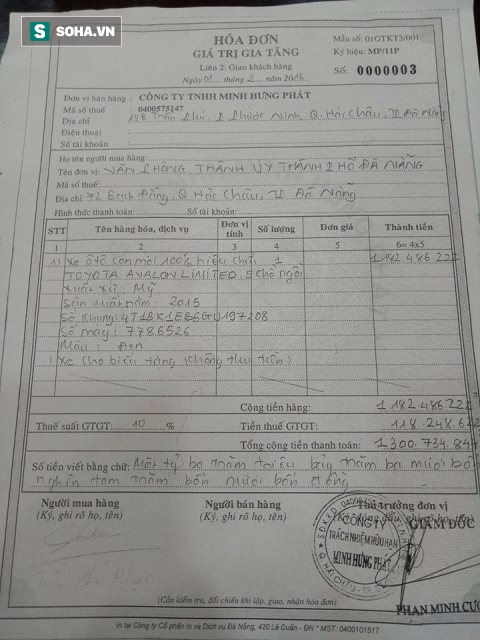 SOHA.VN
HÓA ĐƠN
GIÁ TRỊ GIA TĂNG
Liên 2: Giao khách hàng
Ngày 01 tháng 2 năm 2016
Mẫu số: 01GTKT3/001
Ký hiệu: MP/11P
Số: 0000003
Đơn vị bán hàng: CÔNG TY TNHH MINH HƯNG PHÁT
Mã số thuế: 0400575147
Địa chỉ 198 Trần Phú, P Phước Ninh Q. Hải Châu, TP Đà Nẵng
Điện thoại
Số tài khoản:
Họ tên người mua hàng:
Tên đơn vị: VĂN PHÒNG THÀNH ỦY THÀNH PHỐ ĐÀ NẴNG
Mã số thuế:
Địa chỉ: 72 Bạch Đằng, Q Hải Châu, TP Đà Nẵng
Hình thức thanh toán: Số tài khoản:
STT Tên hàng hóa, dịch vụ Đơn vị tính Số lượng Đơn giá Thành tiền
1 2 3 4 5 6= 4x5
1) Xe ôtô con mới 100% hiệu Chiếc 1 1.182.486.222
TOYOTA AVALON LIMITED, 5 chỗ ngồi
Xuất xứ: Mỹ
Sản xuất năm: 2015
Số khung: 4T1BK1EB6GU197208
Số máy: 7786526
Màu: Đen
(Xe cho biếu tặng không thu tiền)
Cộng tiền hàng: 1.182.486.222
Thuế suất GTGT: 10 % Tiền thuế GTGT: 118.248.622
Tổng cộng tiền thanh toán: 1.300.734.844
Số tiền viết bằng chữ: Một tỷ ba trăm triệu bảy trăm ba mươi bốn
nghìn tám trăm bốn mươi bốn đồng
Người mua hàng Người bán hàng Thủ trưởng đơn vị
(Ký, ghi rõ họ, tên) (Ký, ghi rõ họ, tên)
GIÁM ĐỐC
CÔNG TY
TRÁCH NHIỆM HỮU HẠN
MINH HƯNG PHÁT
PHAN MINH CƯƠ
(Cần kiểm tra, đối chiếu khi lập, giao, nhận hóa đơn)
In tại Công ty Cổ phần In và Dịch vụ Đà Nẵng, 420 Lê Duẩn - ĐN * MST: 0400101517